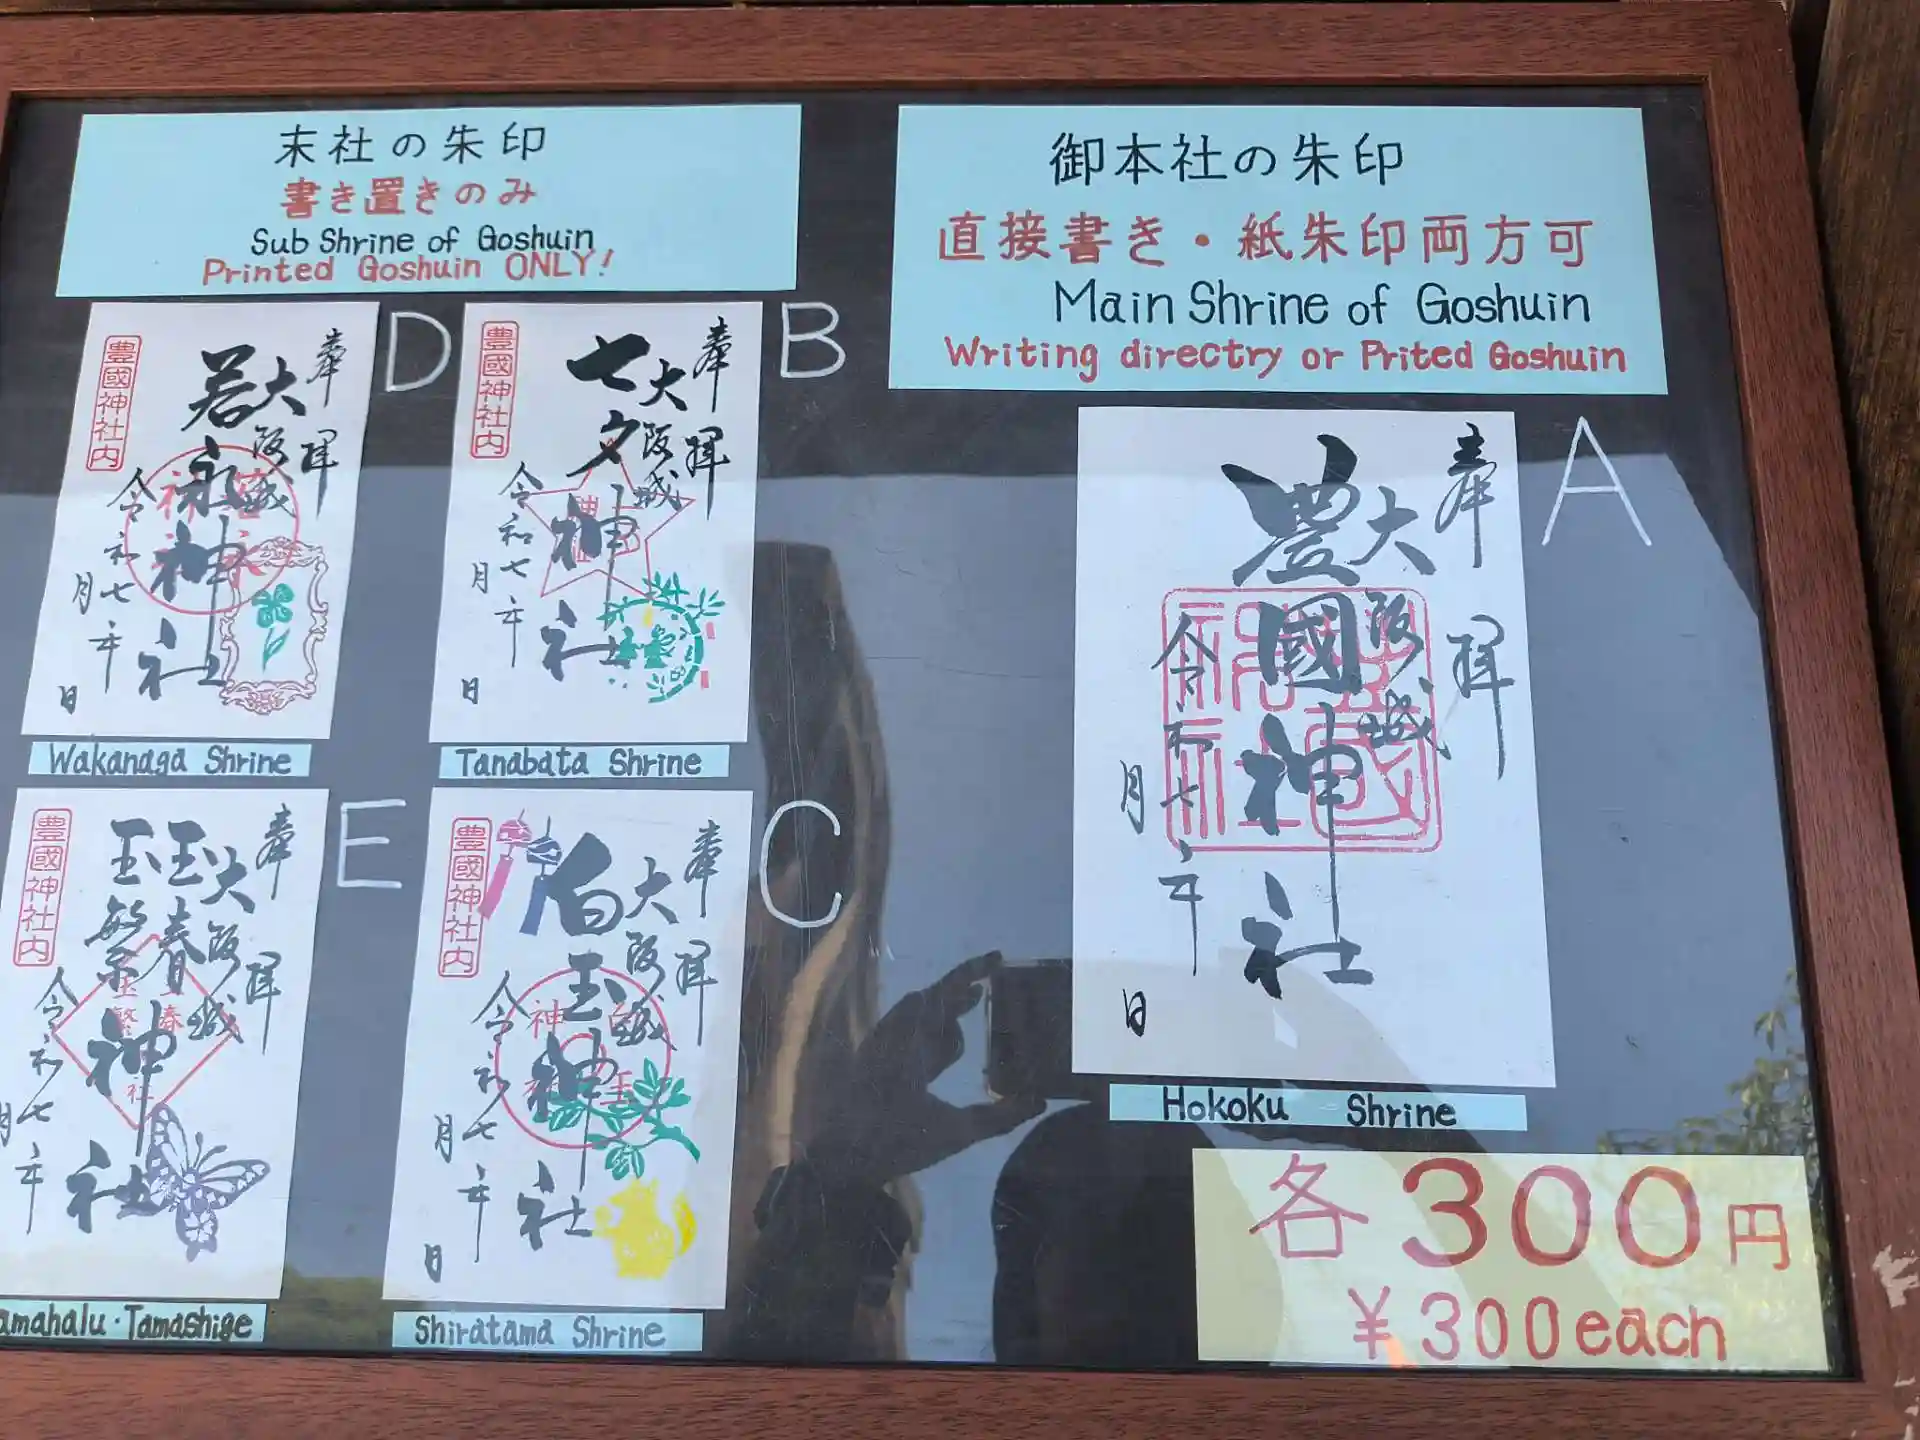 末社の朱印
書き置きのみ
Sub Shrine of Goshuin
Printed Goshuin ONLY!
御本社の朱印
直接書き・紙朱印両方可
Main Shrine of Goshuin
Writing directry or Prited Goshuin
D
奉拝
大阪城
若永神社
令和七年
月
日
豊國神社内
Wakanaga Shrine
B
奉拝
大阪城
七夕神社
令和七年
月
日
豊國神社内
Tanabata Shrine
A
奉拝
大阪城
豊國神社
令和七年
月
日
Hokoku Shrine
E
奉拝
大阪城
玉春
玉繁
神社
令和七年
月
豊國神社内
amahalu・Tamashige
C
奉拝
大阪城
白玉神社
令和七年
月
日
豊國神社内
Shiratama Shrine
各300円
¥300each